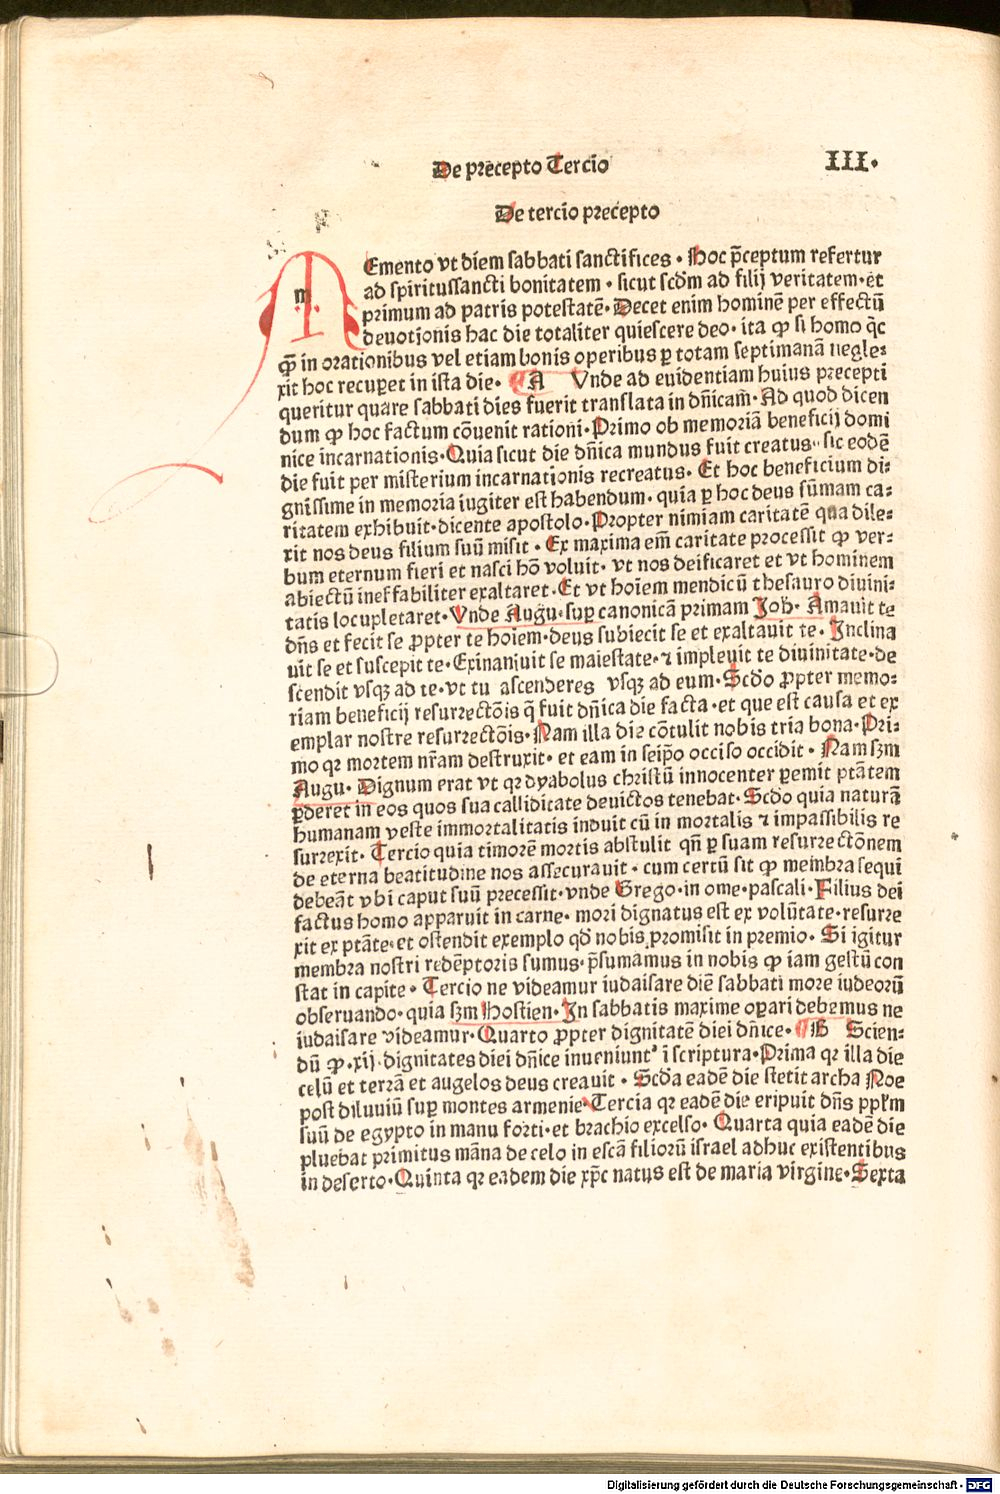 De precepto Tercio III.
De tercio precepto
m
Emento vt diem sabbati sanctifices . Hoc p̄ceptum refertur
ad spiritussancti bonitatem . sicut scd̄m ad filij veritatem . et
primum ad patris potestatē . Decet enim hominē per effectū
deuotionis hac die totaliter quiescere deo . ita ꝙ si homo q̄c
ꝙ̄ in orationibus vel etiam bonis operibus ꝑ totam septimanā negle⸗
xit hoc recuꝑet in ista die . A Vnde ad euidentiam huius precepti
queritur quare sabbati dies fuerit translata in dn̄icam̄ . Ad quod dicen
dum ꝙ hoc factum cōuenit rationi . Primo ob memoriā beneficij domi
nice incarnationis . Quia sicut die dn̄ica mundus fuit creatus . sic eodē
die fuit per misterium incarnationis recreatus . Et hoc beneficium di⸗
gnissime in memoria iugiter est habendum . quia ꝑ hoc deus sūmam ca⸗
ritatem exhibuit . dicente apostolo . Propter nimiam caritatē qua dile⸗
xit nos deus filium suū misit . Ex maxima em̄ caritate processit ꝙ ver⸗
bum eternum fieri et nasci hō voluit . vt nos deificaret et vt hominem
abiectū ineffabiliter exaltaret . Et vt hoīem mendicū thesauro diuini⸗
tatis locupletaret . Vnde Augu . suꝑ canonicā primam Joh̄ . Amauit te
dn̄s et fecit se ꝓpter te hoīem . deus subiecit se et exaltauit te . Inclina
uit se et suscepit te . Exinaniuit se maiestate . ⁊ impleuit te diuinitate . de
scendit vsqꝫ ad te . vt tu ascenderes vsqꝫ ad eum . Scd̄o ꝓpter memo⸗
riam beneficij resurrectōis q̄ fuit dn̄ica die facta . et que est causa et ex
emplar nostre resurrectōis . Nam illa die cōtulit nobis tria bona . Pri⸗
mo qꝛ mortem nr̄am destruxit . et eam in seip̄o occiso occidit . Nam sꝫm
Augu . Dignum erat vt qꝛ dyabolus christū innocenter ꝑemit ptātem
ꝑderet in eos quos sua calliditate deuictos tenebat . Scd̄o quia naturā
humanam veste immortalitatis induit cū in mortalis ⁊ impassibilis re
surrexit . Tercio quia timorē mortis abstulit qn̄ ꝑ suam resurrectōnem
de eterna beatitudine nos assecurauit . cum certū sit ꝙ membra sequi
debeāt vbi caput suū precessit . vnde Grego . in ome . pascali . Filius dei
factus homo apparuit in carne . mori dignatus est ex volūtate . resurre
xit ex ptāte . et ostendit exemplo qd̄ nobis promisit in premio . Si igitur
membra nostri redēptoris sumus . p̄sumamus in nobis ꝙ iam gestū con
stat in capite . Tercio ne videamur iudaisare diē sabbati more iudeorū
obseruando . quia sꝫm Hostien . In sabbatis maxime oꝑari debemus ne
iudaisare videamur . Quarto ꝓpter dignitatē diei dn̄ice . B Scien⸗
dū ꝙ . xij . dignitates diei dn̄ice inueniunt᷑ ī scriptura . Prima qꝛ illa die
celū et terrā et augelos deus creauit . Scd̄a eadē die stetit archa Noe
post diluuiū suꝑ montes armenie . Tercia qꝛ eadē die eripuit dn̄s pplm̄
suū de egypto in manu forti . et brachio excelso . Quarta quia eadē die
pluebat primitus māna de celo in escā filiorū israel adhuc existentibus
in deserto . Quinta qꝛ eadem die xp̄c natus est de maria virgine . Sexta
Digitalisierung gefördert durch die Deutsche Forschungsgemeinschaft - DFG